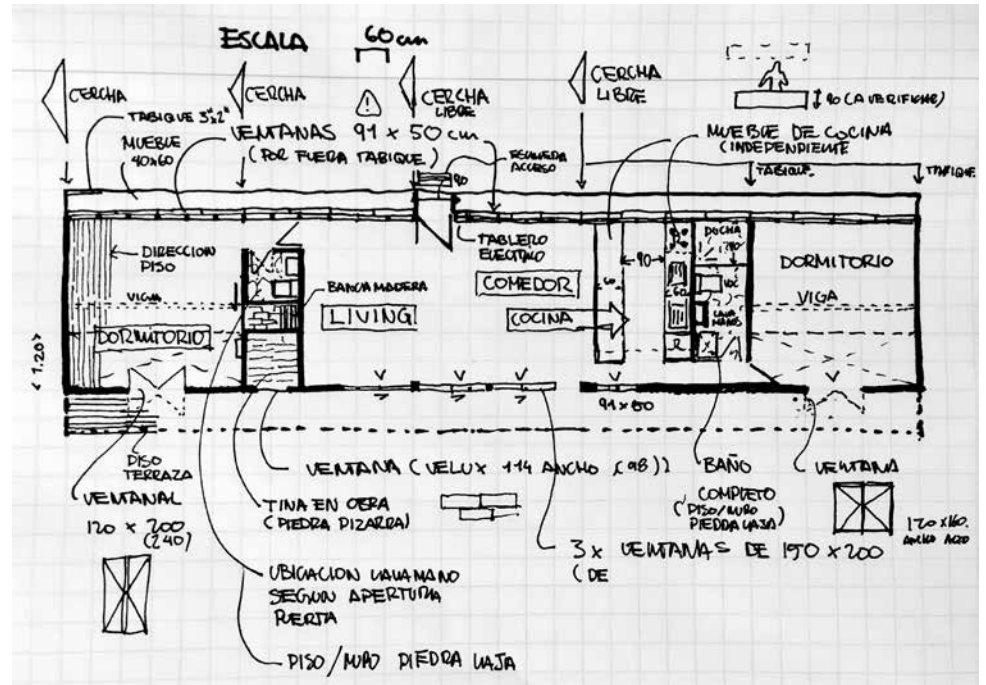 ESCALA 60 cm
CERCHA
CERCHA
CERCHA
LIBRE
CERCHA
LIBRE
90 (A VERIFICAR)
TABIQUE 3"x2"
MUEBLE
40x60
VENTANAS 91 x 50 cm
(POR FUERA TABIQUE)
ACCESO
90
MUEBLE DE COCINA
(INDEPENDIENTE
TABIQUE.
TABIQUE.
DIRECCION
PISO
TABLERO
ELECTRICO
90
DUCHA
90
DORMITORIO
BANCA MADERA
COMEDOR
60
60
WC
VIGA
VIGA
LIVING
COCINA
LAVA
MANOS
DORMITORIO
R
1.20
91 x 50
PISO
TERRAZA
VENTANAL
120 x 200
(240)
VENTANA (VELUX 114 ANCHO (98))
TINA EN OBRA
(PIEDRA PIZARRA)
BAÑO
COMPLETO
(PISO/MURO
PIEDRA LAJA)
VENTANA
120 x 160.
3 x VENTANAS DE 150 x 200
(DE
UBICACION LAVAMANO
SEGUN APERTURA
PUERTA
PISO/MURO PIEDRA LAJA